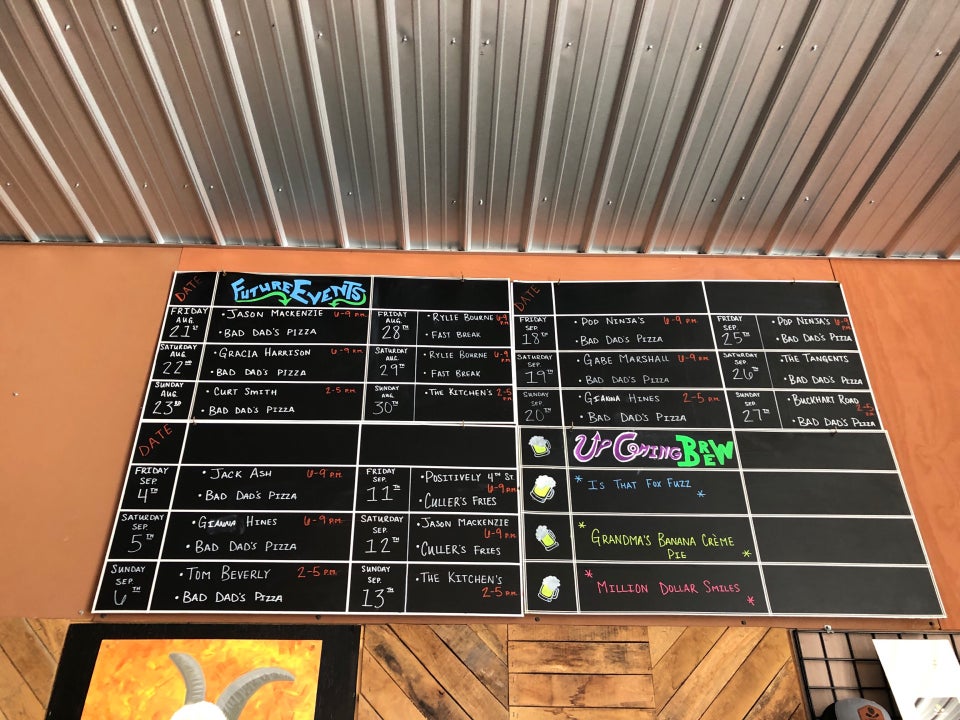 DATE
FUTURE EVENTS
FRIDAY
AUG.
21ST
• JASON MACKENZIE 6-9 P.M.
• BAD DAD'S PIZZA
FRIDAY
AUG.
28TH
• RYLIE BOURNE 6-9 P.M.
• FAST BREAK
SATURDAY
AUG.
22ND
• GRACIA HARRISON 6-9 P.M.
• BAD DAD'S PIZZA
SATURDAY
AUG.
29TH
• RYLIE BOURNE 6-9 P.M.
• FAST BREAK
SUNDAY
AUG.
23RD
• CURT SMITH 2-5 P.M.
• BAD DAD'S PIZZA
SUNDAY
AUG.
30TH
• THE KITCHEN'S 2-5 P.M.
DATE
FRIDAY
SEP.
18TH
• POP NINJA'S 6-9 P.M.
• BAD DAD'S PIZZA
FRIDAY
SEP.
25TH
• POP NINJA'S 6-9 P.M.
• BAD DAD'S PIZZA
SATURDAY
SEP.
19TH
• GABE MARSHALL 6-9 P.M.
BAD DAD'S PIZZA
SATURDAY
SEP.
26TH
• THE TANGENTS
• BAD DAD'S PIZZA
SUNDAY
SEP.
20TH
• GIANNA HINES 2-5 P.M.
• BAD DAD'S PIZZA
SUNDAY
SEP.
27TH
• BUCKHART ROAD 2-5 P.M.
• BAD DAD'S PIZZA
DATE
FRIDAY
SEP.
4TH
• JACK ASH 6-9 P.M.
• BAD DAD'S PIZZA
FRIDAY
SEP.
11TH
• POSITIVELY 4TH ST.
6-9 P.M.
• CULLER'S FRIES
SATURDAY
SEP.
5TH
• GIANNA HINES 6-9 P.M.
• BAD DAD'S PIZZA
SATURDAY
SEP.
12TH
• JASON MACKENZIE
6-9 P.M.
• CULLER'S FRIES
SUNDAY
SEP.
6TH
• TOM BEVERLY 2-5 P.M.
• BAD DAD'S PIZZA
SUNDAY
SEP.
13TH
• THE KITCHEN'S
2-5 P.M.
UPCOMING BREW
* IS THAT FOX FUZZ *
* GRANDMA'S BANANA CRÈME
PIE *
* MILLION DOLLAR SMILES *